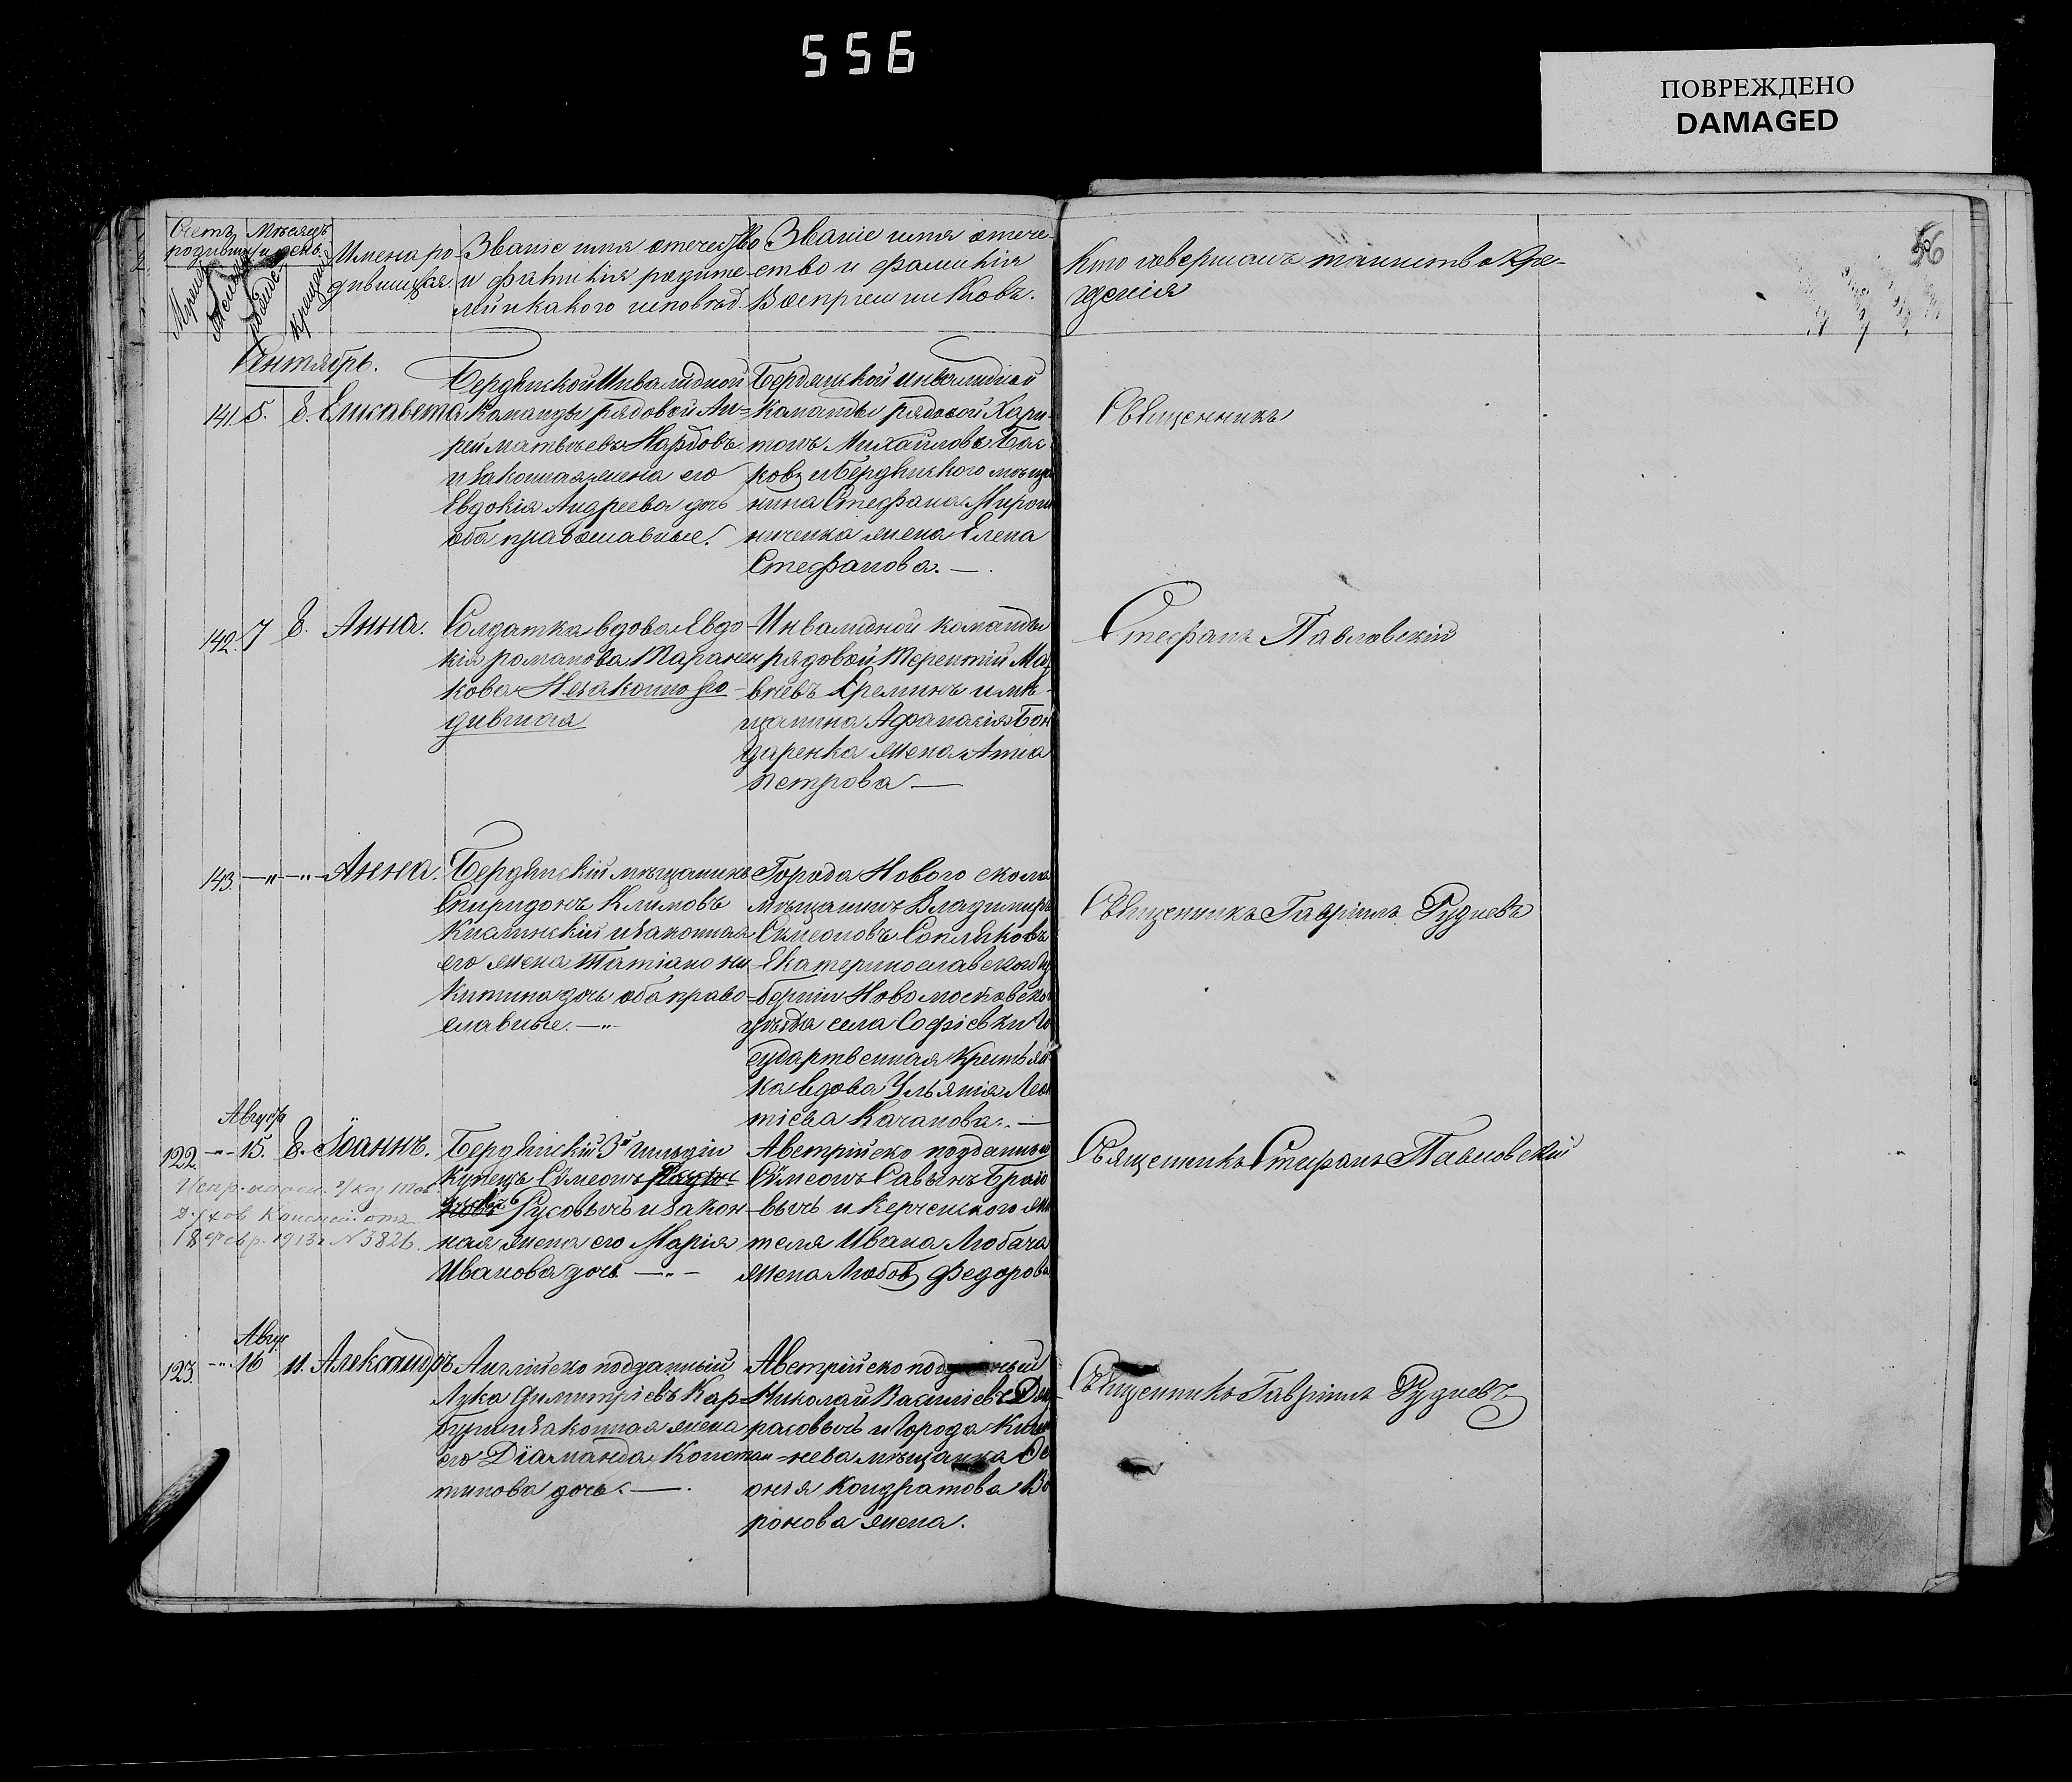 556
ПОВРЕЖДЕНО
DAMAGED
56
Счетъ родивших
Мѣсяцъ и день
Мужеска
Женска
рожденія
крещенія
Имена ро-
дившихся
Званіе имя отечество
и фамилія родите-
лей и какого исповѣд.
Званіе имя отече-
ство и фамилія
Воспріемниковъ.
Кто совершалъ таинство Кре-
щенія
Сентябрь.
141. 5. 8. Елисавета
Бердянской Инвалидной
Команды рядовой Ан-
рей Матвѣевъ Нардовъ
и законная жена его
Евдокія Андреева дочь
оба православные.
Бердянской инвалидной
команды рядовой Хари-
тонъ Михайловъ Бая
ковъ и Бердянского мѣща
нина Стефана Мирош
ниченка жена Елена
Стефанова. —.
Священникъ
142. 7 8. Анна.
Солдатка вдова Евдо-
кія романова Таранен
кова Незаконно ро-
дившая
Инвалидной команды
рядовой Терентий Ма
вѣевъ Ереминъ и мѣ-
щанина Афанасія Бон
даренка жена Анна
Петрова —
Стефанъ Павловскій
143. —"— —"— Анна.
Бердянскій мѣщанинъ
Спиридонъ Климовъ
и законная
его жена Татіана Ни
китина дочь оба право-
славные. —"
Города Нового оскола
мѣщанинъ Владимиръ
Сѵмеоновъ Сопляковъ
Екатеринославской гу
берніи Новомосковского
уѣзда села Софіевки Го
сударственная Крестьян
ка вдова Ульянія Леон
тіева Качанова. —
Священникъ Гавріилъ Рудневъ
Август
122. —"— 15. 8. Іоаннъ.
Испр. оконч. Указ Тав.
Духов Консист. отъ
18 Февр. 1913 г. № 3826.
Бердянскій 3й гильдіи
купецъ Сѵмеонъ
Русовичъ и закон
ная жена его Марія
Иванова дочь —"—
Австрійско подданный
Сѵмеонъ Савинъ Брайо
вичъ и Керченского жи
теля Ивана Любача
жена Любовь Федорова
Священникъ Стефанъ Павловскій
Авгус
123. —"— 16 11. Александръ
Англійско подданный
Лука Димитріевъ Кар-
бури и законная жена
его Діаманда Констан-
тинова дочь. —.
Австрійско подданный
Николай Васильевъ Дам
расовичъ и Города Киши
нева мѣщанка Фе
онія Кондратова Во
ронова жена.
Священникъ Гавріилъ Рудневъ